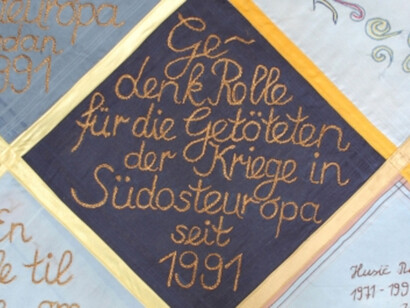 Ge-
denk Rolle
für die Getöteten
der Kriege in
Südosteuropa
seit
1991
europa
dan
1991
En
le til
Husić
1971-199